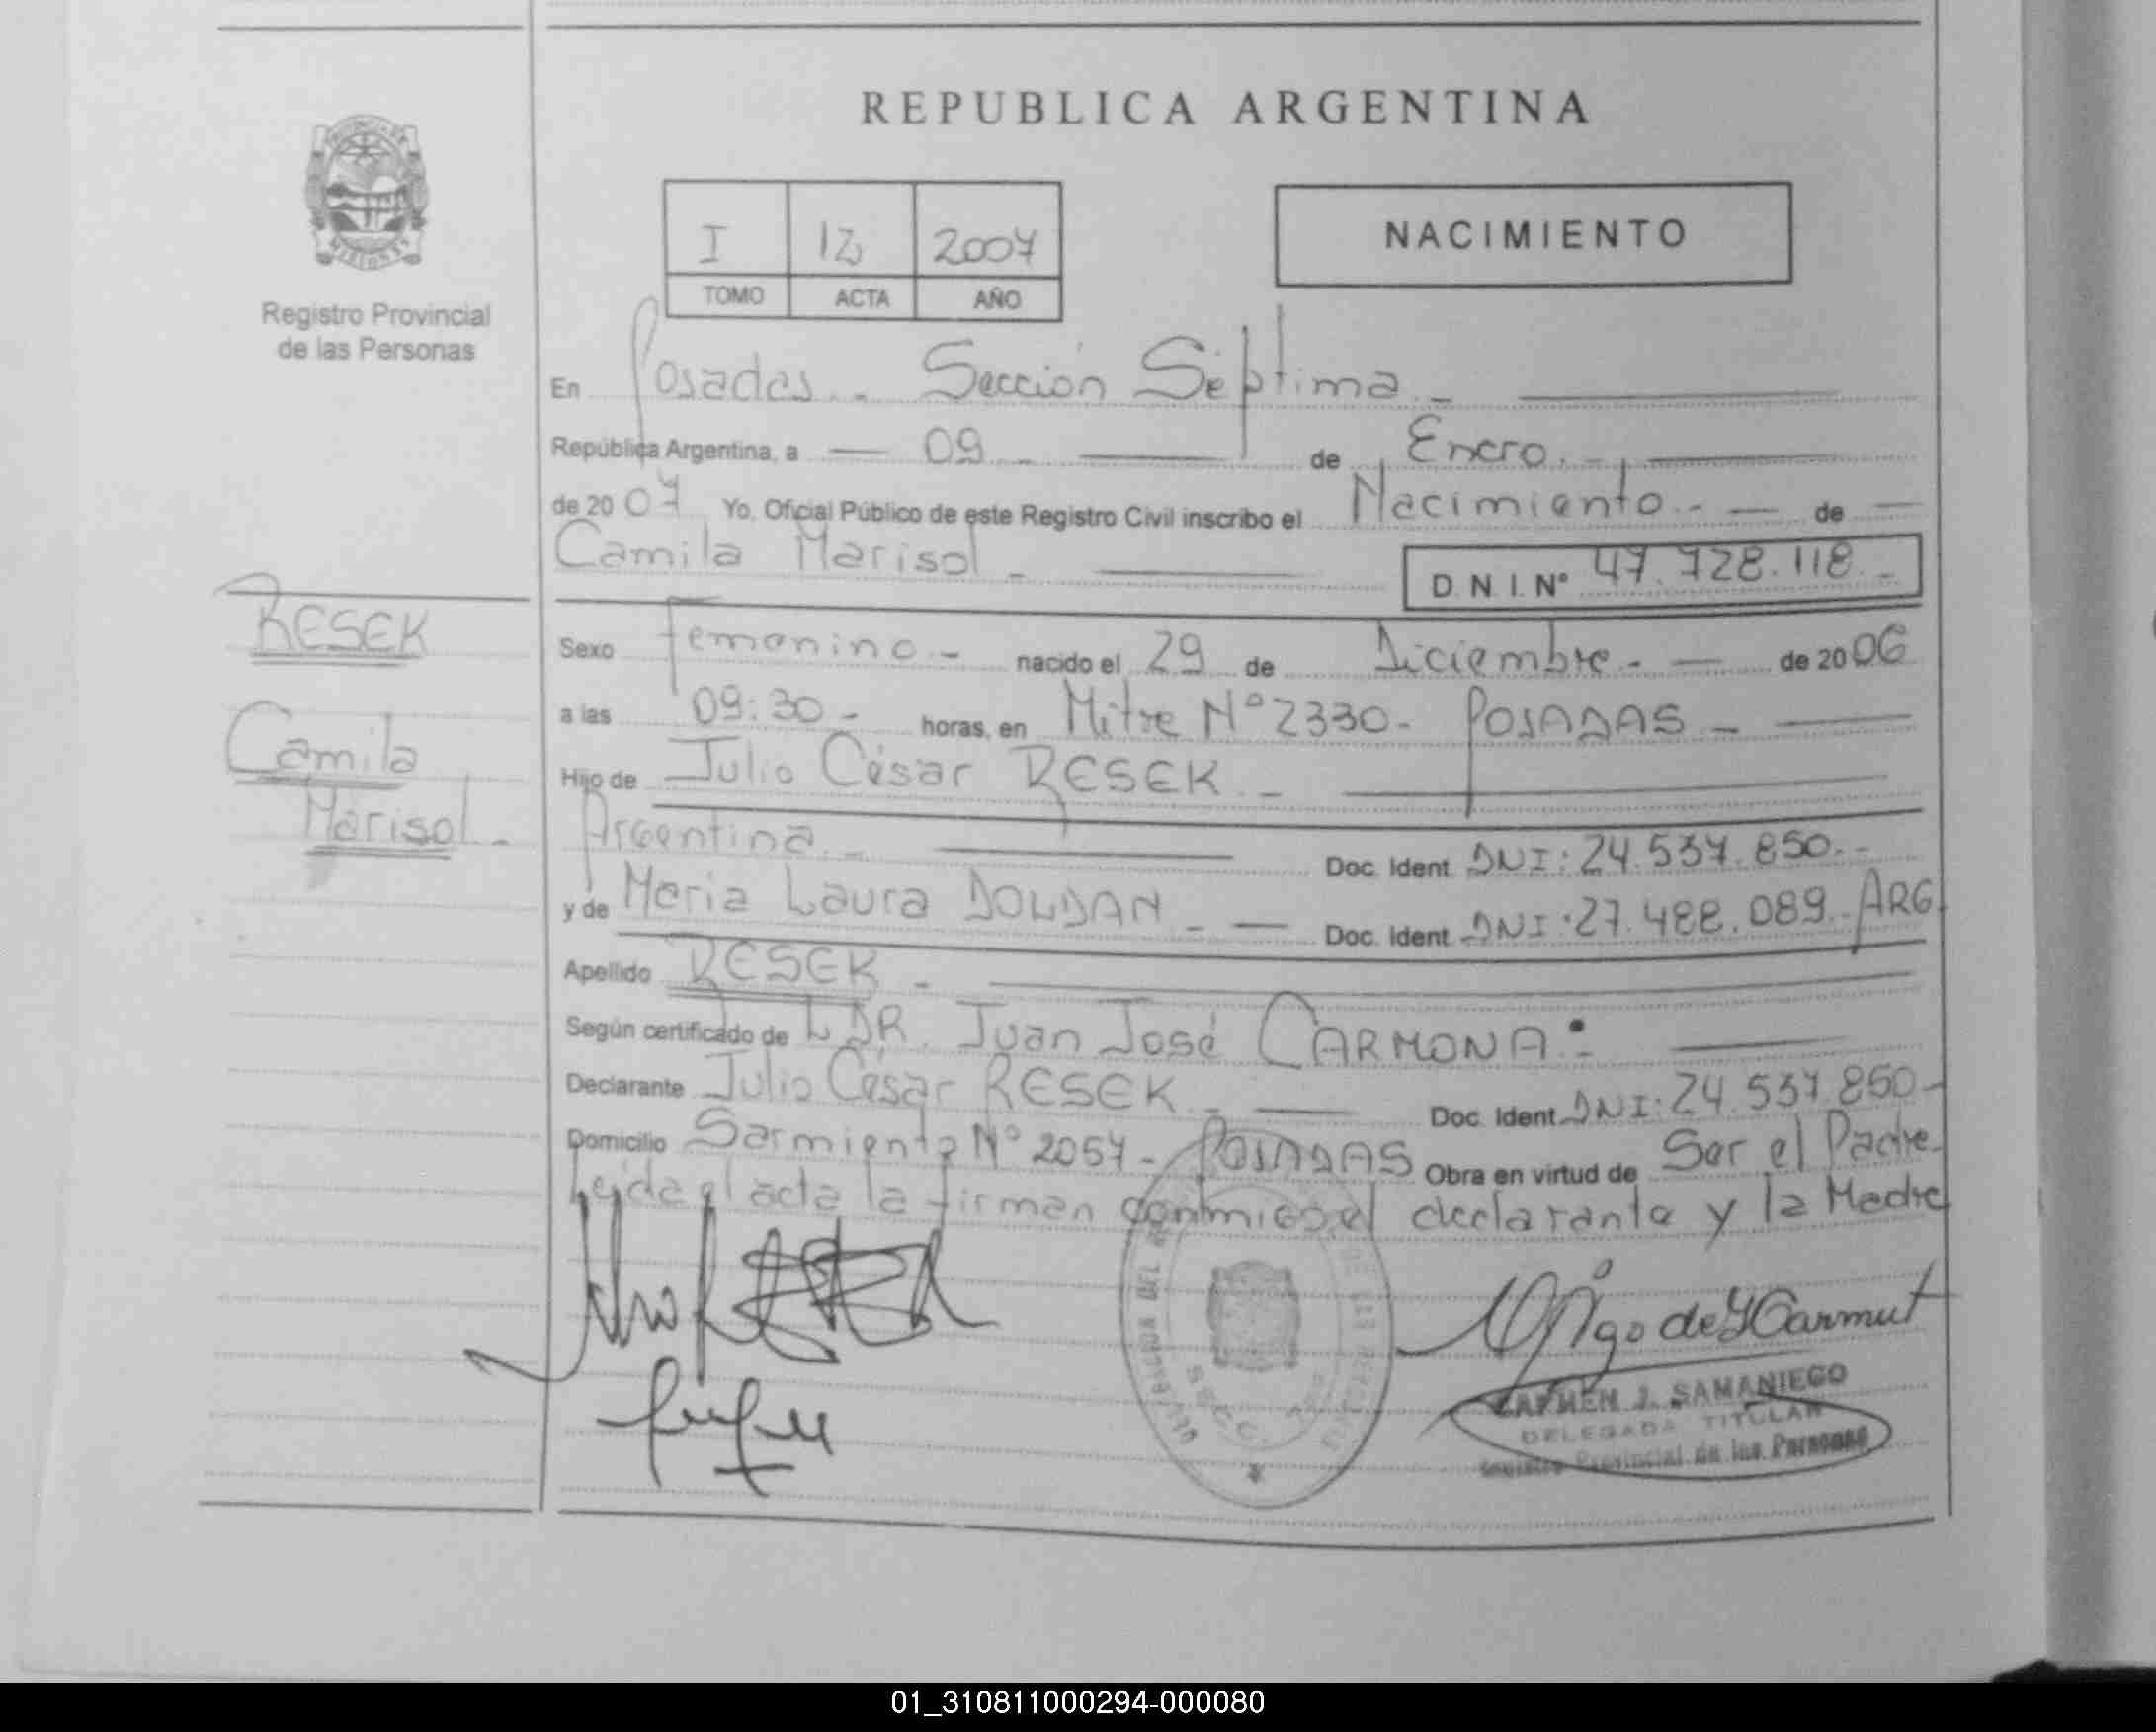 REPUBLICA ARGENTINA
I 12 2007
TOMO ACTA AÑO
NACIMIENTO
Registro Provincial
de las Personas
En Posadas.- Sección Séptima.-
República Argentina, a — 09.- — de Enero.- —
de 2007 Yo, Oficial Público de este Registro Civil inscribo el Nacimiento.- — de —
Camila Marisol.- — D. N. I. Nº 47.728.118.-
RESEK
Camila
Marisol.-
Sexo femenino.- nacido el 29 de Diciembre.- — de 2006
a las 09:30.- horas, en Mitre Nº 2330- POSADAS.- —
Hijo de Julio César RESEK.- —
Argentina.- — Doc. Ident. DNI: 24.537.850.-
y de María Laura DOLDAN.- — Doc. Ident. DNI: 27.488.089.- ARG
Apellido RESEK.- —
Según certificado de DR. Juan José CARMONA.- —
Declarante Julio César RESEK.- — Doc. Ident. DNI: 24.537.850-
Domicilio Sarmiento Nº 2057- POSADAS Obra en virtud de Ser el Padre.
Leida el acta la firman conmigo el declarante y la Madre
CARMEN J. SAMANIEGO
DELEGADA TITULAR
Registro Provincial de las Personas
01_310811000294-000080